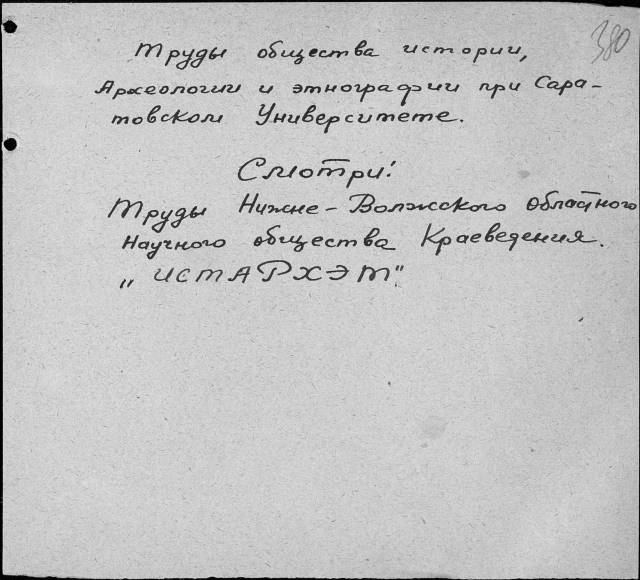 380
Труды общества истории,
Археологии и этнографии при Сара-
товском Университете.
Смотри!
Труды Нижне-Волжского областного
Научного общества Краеведения.
„ИСТАРХЭТ"